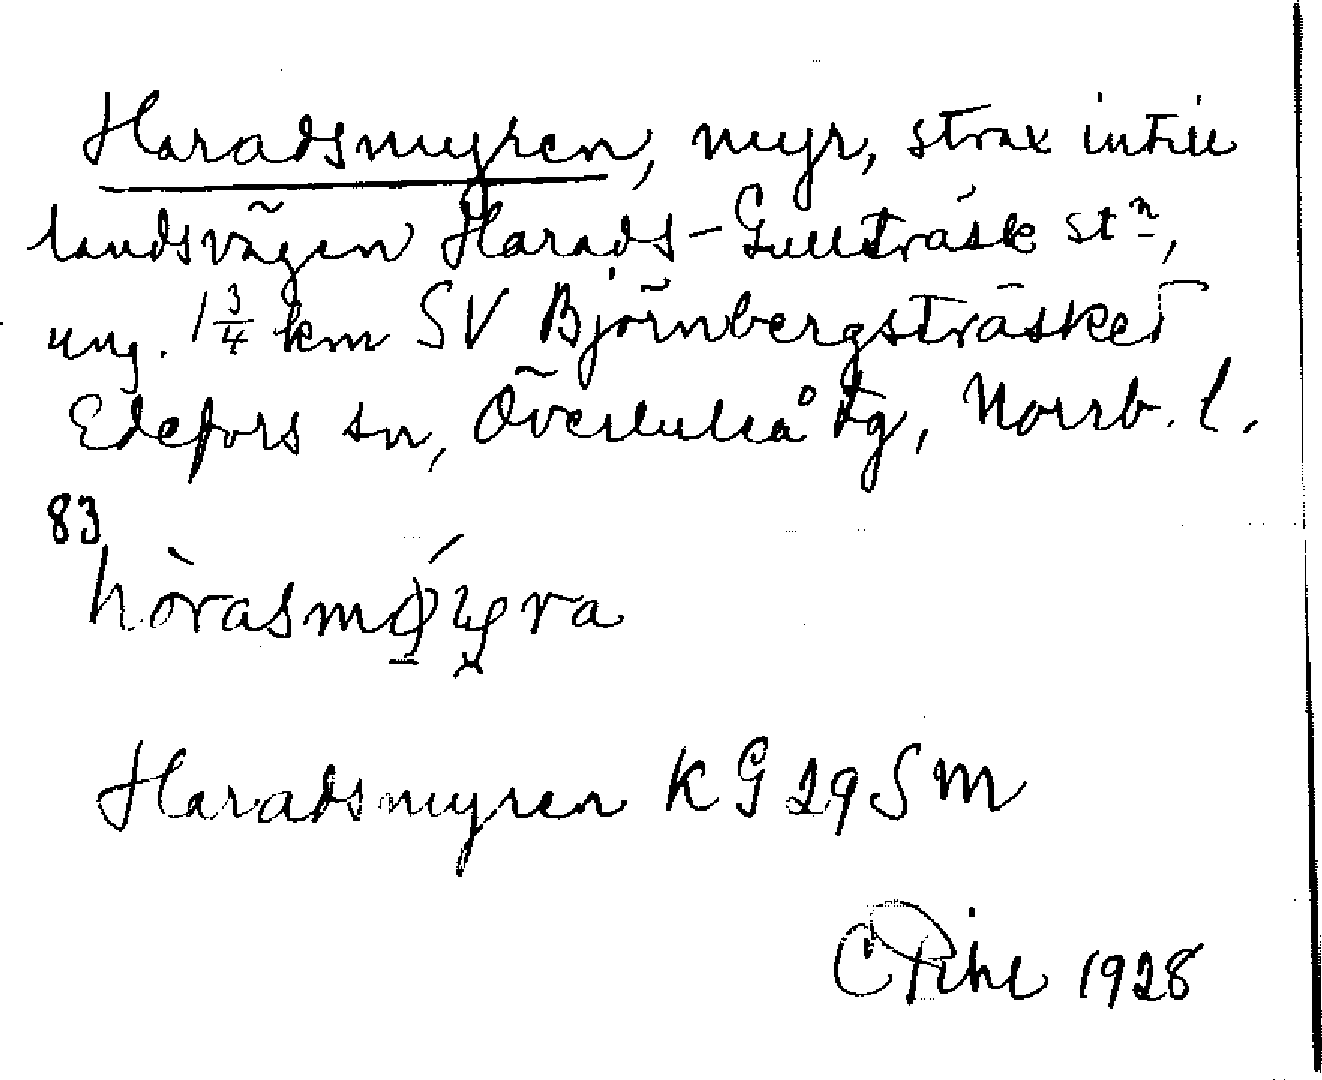 Haradsmyren, myr, strax intill
landsvägen Harads-Gullträsk stn,
ung. 1 3/4 km SV Björnbergsträsket
Edefors sn, Överluleå tg, Norrb. l.
83
hòrasmǿyra
Haradsmyren KG 29 SM
C Pihl 1928